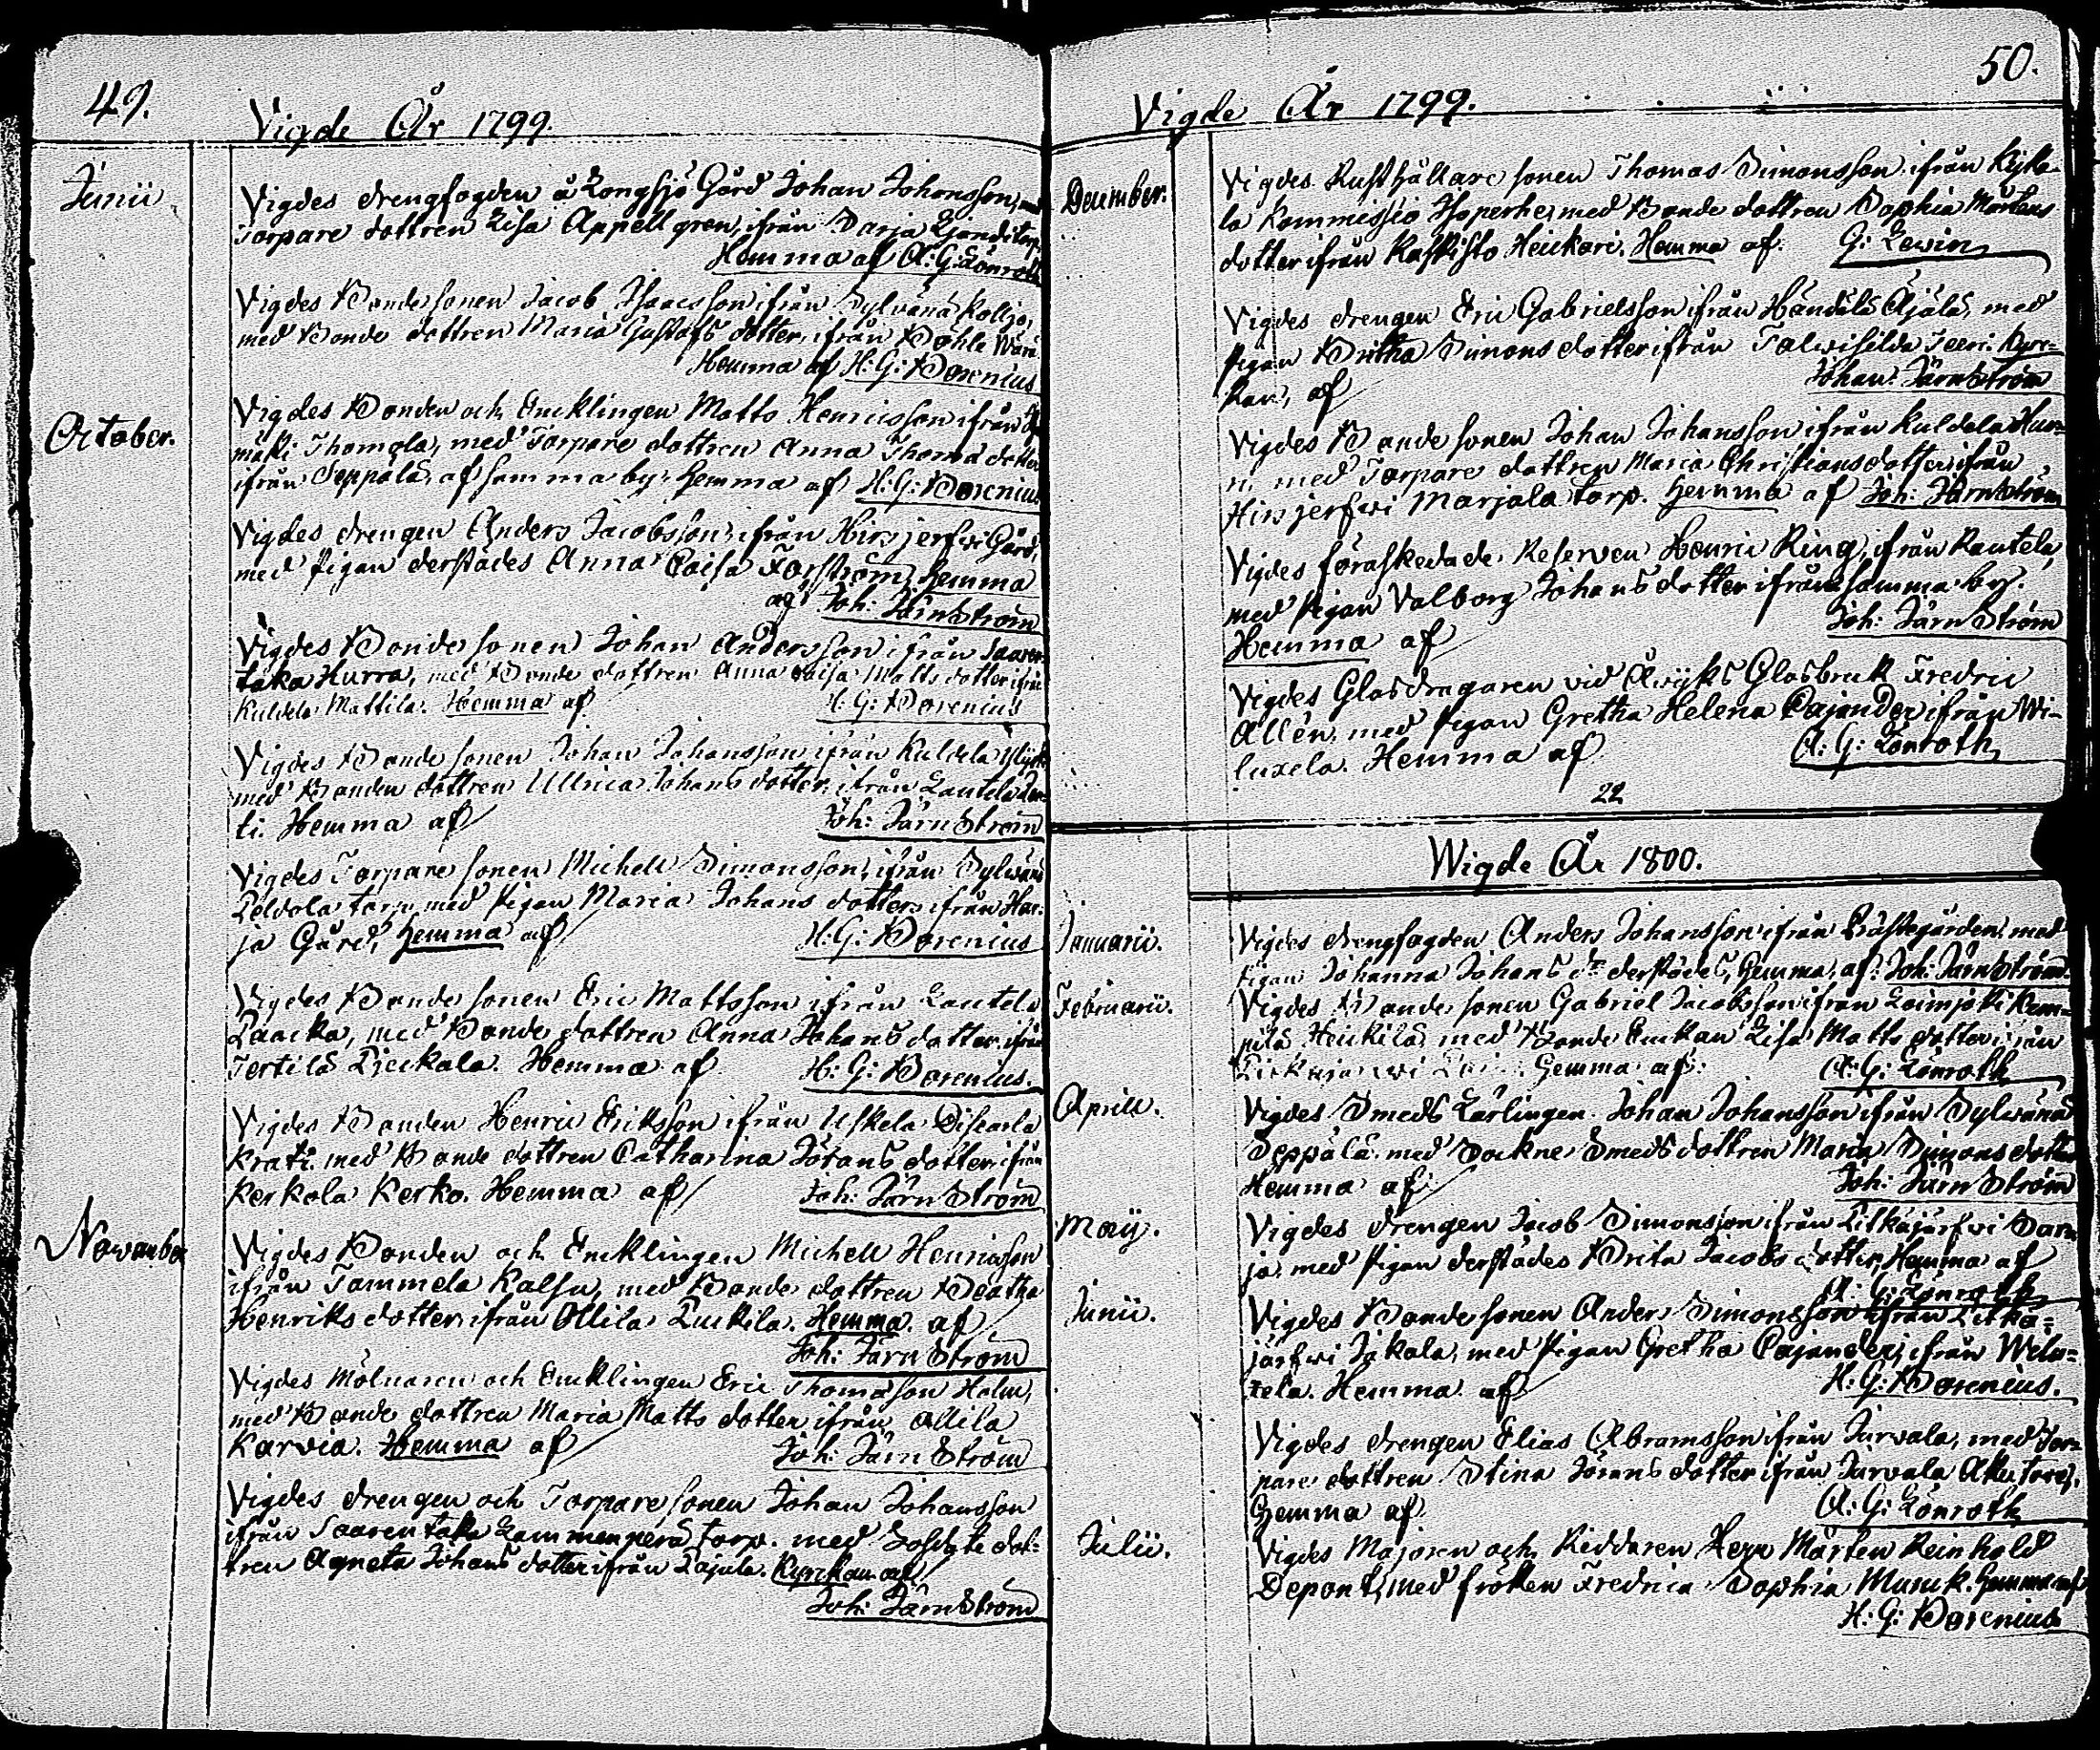 49.
Vigde År 1799.
Junii
Vigdes drengfogden å Långsjö Gård Johan Johansson, med
Torpare dottren Lisa Appellgren, ifrån Sarja
Hemma af A: G: Lönroth
Vigdes Bonde sonen Jacob Isaacsson ifrån Sylvänä Kolljo,
med Bonde dottren Maria Gustafs dotter, ifrån
Hemma af H: G: Borenius
October.
Vigdes Bonden och Encklingen Matts Henricsson ifrån
mäki Thomola, med Torpare dottren Anna Thomæ dotter
ifrån Seppälä, af samma by, hemma af H: G: Borenius
Vigdes drengen Anders Jacobsson, ifrån Hirsjerfvi Gård,
med Pigan derstädes Anna Caisa Forström, hemma
af Joh: Järnström
Vigdes Bonde sonen Johan Andersson ifrån Saaren
taka Hurra, med Bonde dottren Anna Caisa Matts dotter ifrån
Kuldela Mattila. Hemma af H: G: Borenius
Vigdes Bonde sonen Johan Johansson ifrån Kuldela
med Bonden dottren Ullrica Johans dotter, ifrån Lautela
ti. Hemma af Joh: Järnström
Vigdes Torpare sonen Michell Simonsson, ifrån Sylvänä
Peldola torp, med Pigan Maria Johans dotter, ifrån Har-
ja Gård, hemma af H: G: Borenius
Vigdes Bonde sonen Eric Mattsson ifrån Lautela
Paacka, med Bonde dottren Anna Johans dotter, ifrån
Tertilä Pieckala. Hemma af H: G: Borenius.
Vigdes Bonden Henric Eriksson ifrån Uskela
Krati. med Bonde dottren Catharina Jörans dotter, ifrån
Kerkola Kerko. Hemma af Joh: Järnström
November
Vigdes Bonden och Encklingen Michell Henricsson
ifrån Tammela Kalsu, med Bonde dottren Beatha
Henriks dotter, ifrån Ollila Luckila. Hemma. af
Joh: Järnström
Vigdes Mölnaren och Encklingen Eric Thomasson Holm,
med Bonde dottren Maria Matts dotter ifrån Ollila
Karvia. Hemma af Joh: Järnström
Vigdes drengen och Torpare sonen Johan Johansson
ifrån Saarentaka Lammenperä torp. med Soldate dot-
tren Agneta Johans dotter ifrån Pajula. Kyrckan af
Joh: Järnström
50.
Vigde År 1799.
December.
Vigdes Rusthållare sonen Thomas Simonsson, ifrån Kyle-
la Kommissio Isoperhe, med Bonde dottren Sophia Mårtens
dotter ifrån Raskisto Heickari. Hemma af. G: Levin
Vigdes drengen Eric Gabrielsson ifrån Händälä Äjälä, med
Pigan Britha Simons dotter ifrån Talvisilda Teeri. Kyrc-
kan, af Johan Järnström
Vigdes Bonde sonen Johan Johansson ifrån Kuldela
med Torpare dottren Maria Christians dotter ifrån
Hirsjerfvi Marjala torp. hemma af Joh: Järnström
Vigdes förafskedade Reserven Henric Ring, ifrån Rautela,
med Pigan Valborg Johans dotter ifrån samma by.
Hemma af Joh: Järnström
Vigdes Glasdragaren vid Åviks Glasbruk Fredric
Allén, med Pigan Gretha Helena Cajander ifrån Wi-
luxela. Hemma af A: G: Lönroth
22
Wigde År 1800.
Januarii.
Vigdes drengfogden Anders Johansson ifrån Prästegården, med
Pigan Johanna Johans dr derstädes, hemma, af: Joh: Järnström.
Februarii.
Vigdes Bonde sonen Gabriel Jacobsson ifrån Loimjoki Kem-
pilä Heickilä, med Bonde Enckan Lisa Matts dotter ifrån
hemma af: A: G: Lönroth
Aprill.
Vigdes Smeds Lärlingen Johan Johansson ifrån Sylvänä
Seppälä. med Sockne Smeds dottren Maria Simons dotter
Hemma af Joh: Järnström
Maij.
Vigdes drengen Jacob Simonsson ifrån Pitkäjärfvi Sar-
ja, med Pigan derstädes Brita Jacobs dotter, Hemma af
A: G: Lönroth
Junii.
Vigdes Bonde sonen Anders Simonsson ifrån Pitkä-
järfvi Jakala, med Pigan Gretha Cajander, ifrån Wilu-
xela. Hemma. af H: G: Borenius.
Vigdes drengen Elias Abramsson ifrån Jurvala, med Tor-
pare dottren Stina Jörans dotter ifrån Jurvala
Hemma af A: G: Lönroth
Julii.
Vigdes Majoren och Riddaren Herr Mårten Reinhold
Depont, med fröken Fredrica Sophia Munck. hemma af
H: G: Borenius